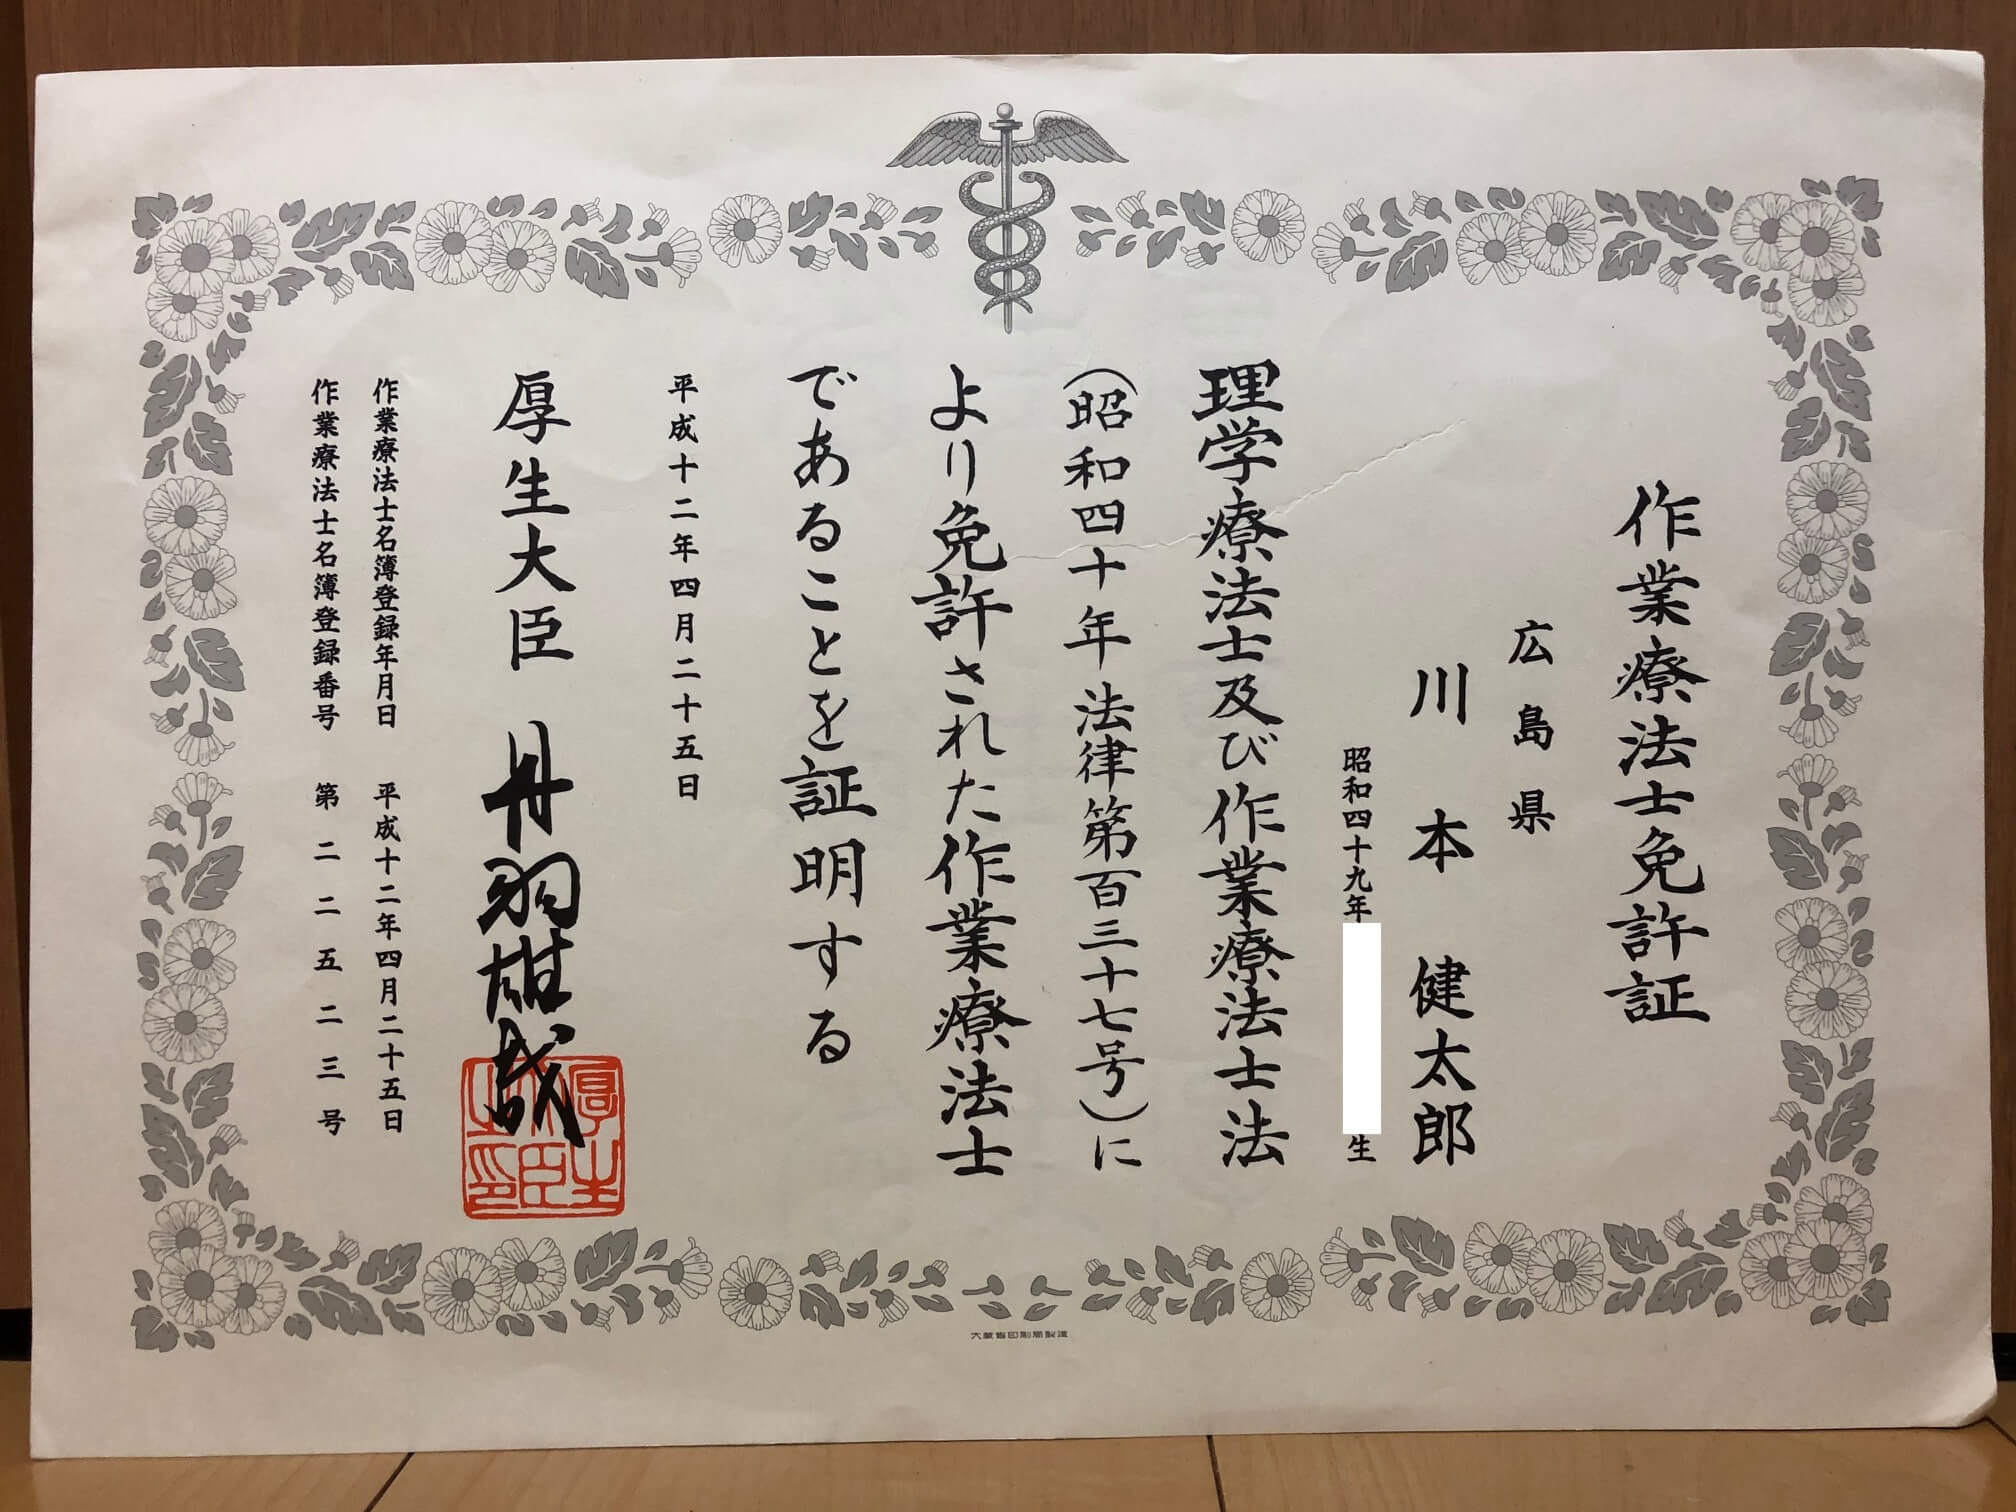 作業療法士免許証
広島県
川本健太郎
昭和四十九年
生
理学療法士及び作業療法士法
（昭和四十年法律第百三十七号）に
より免許された作業療法士
であることを証明する
平成十二年四月二十五日
厚生大臣 丹羽雄哉
厚生大臣之印
作業療法士名簿登録年月日 平成十二年四月二十五日
作業療法士名簿登録番号 第二二五二三号
大蔵省印刷局製造